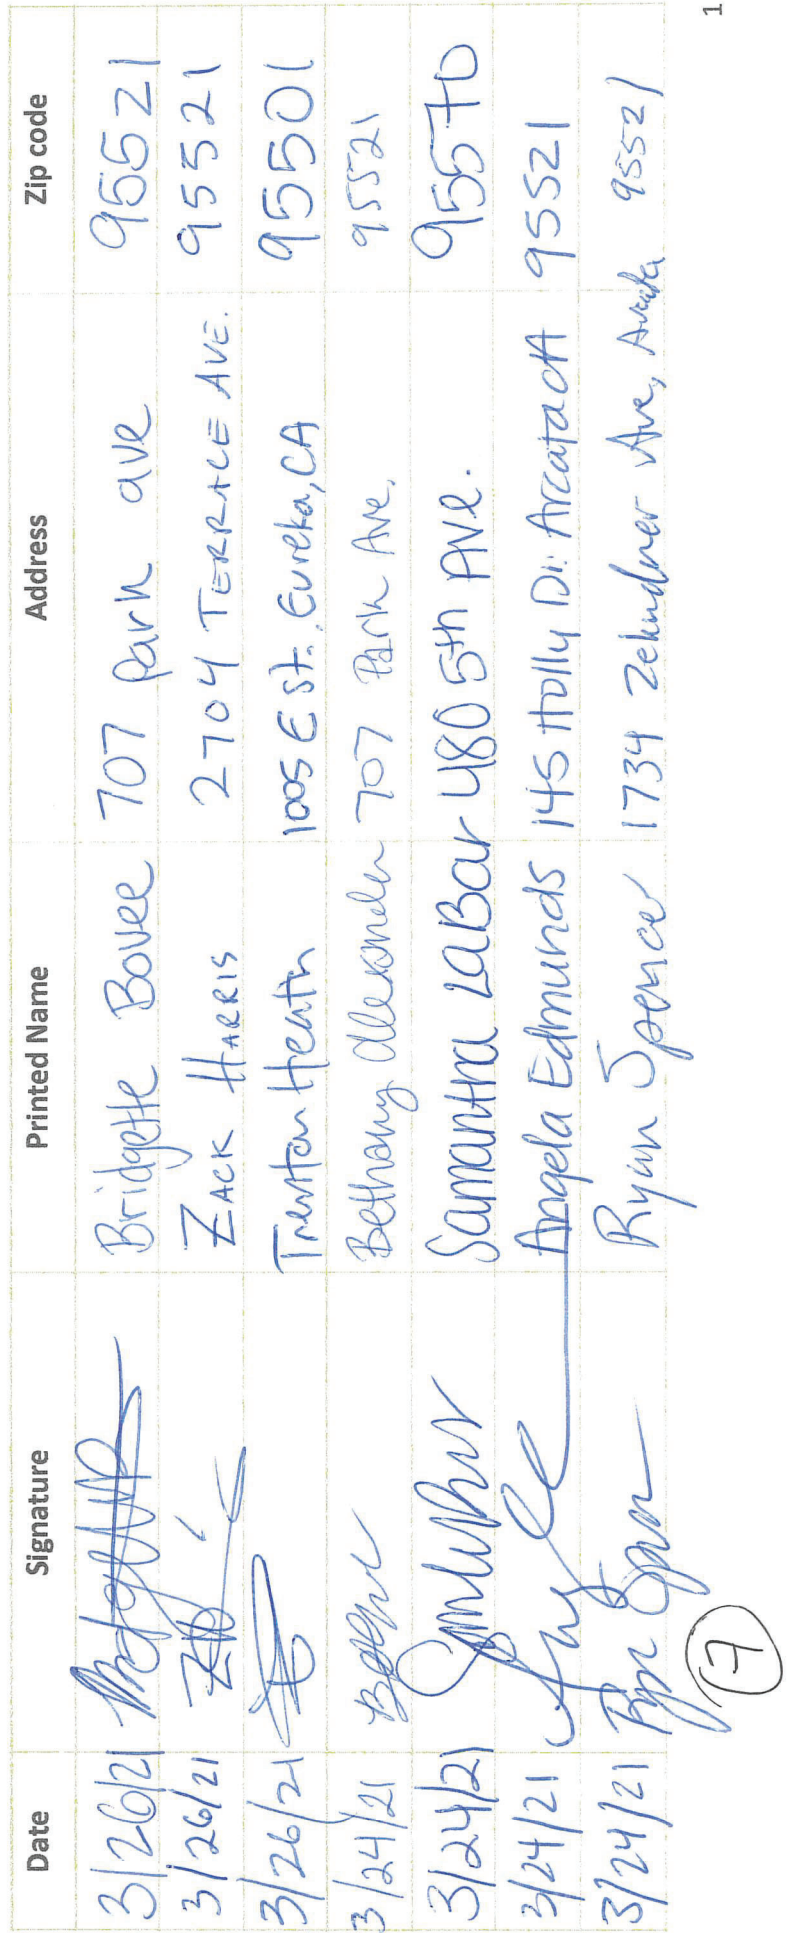 Date Signature Printed Name Address Zip code
3/26/21 Bridgette Bovee 707 Park ave 95521
3/26/21 ZACK HARRIS 2704 TERRACE AVE. 95521
3/26/21 Trenton Heath 1005 E St. Eureka, CA 95501
3/24/21 Bethany Alexander 707 Park Ave. 95521
3/24/21 Samantha LaBar 480 5th Ave. 95570
3/24/21 Angela Edmunds 145 Holly Dr. Arcata CA 95521
3/24/21 Ryan Spencer 1734 Zehndner Ave, Arcata 95521
7
1